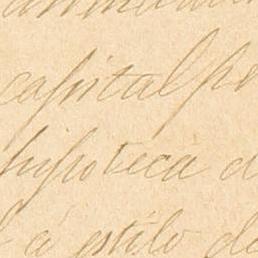 capital pr
hipoteca d
á estilo de